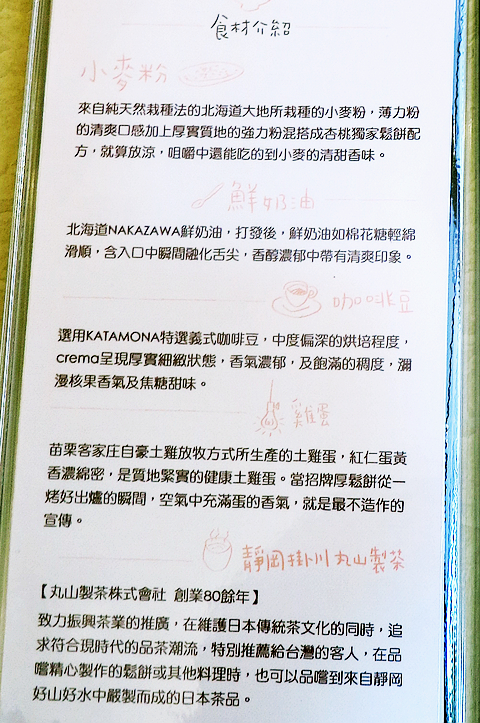 食材介紹
小麥粉
來自純天然栽種法的北海道大地所栽種的小麥粉，薄力粉
的清爽口感加上厚實質地的強力粉混搭成杏桃獨家鬆餅配
方，就算放涼，咀嚼中還能吃的到小麥的清甜香味。
鮮奶油
北海道NAKAZAWA鮮奶油，打發後，鮮奶油如棉花糖輕綿
滑順，含入口中瞬間融化舌尖，香醇濃郁中帶有清爽印象。
咖啡豆
選用KATAMONA特選義式咖啡豆，中度偏深的烘培程度，
crema呈現厚實細緻狀態，香氣濃郁，及飽滿的稠度，瀰
漫核果香氣及焦糖甜味。
雞蛋
苗栗客家庄自豪土雞放牧方式所生產的土雞蛋，紅仁蛋黃
香濃綿密，是質地緊實的健康土雞蛋。當招牌厚鬆餅從一
烤好出爐的瞬間，空氣中充滿蛋的香氣，就是最不造作的
宣傳。
靜岡掛川丸山製茶
【丸山製茶株式會社 創業80餘年】
致力振興茶業的推廣，在維護日本傳統茶文化的同時，追
求符合現時代的品茶潮流，特別推薦給台灣的客人，在品
嚐精心製作的鬆餅或其他料理時，也可以品嚐到來自靜岡
好山好水中嚴製而成的日本茶品。